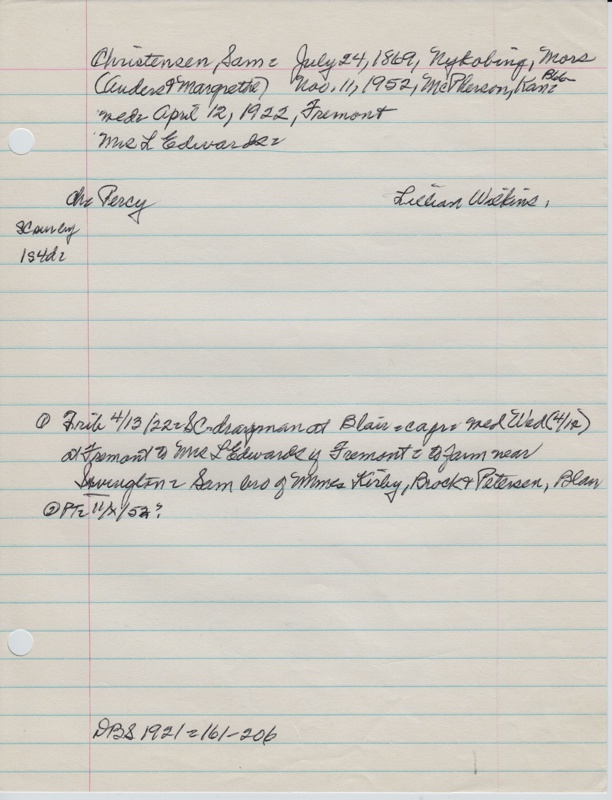 Christensen, Sam = July 24, 1869, Nykobing, Mors
(Anders & Margrethe) Nov. 11, 1952, McPherson, Kan =
med = April 12, 1922, Fremont
Mrs L Edwards =
Ch = Percy Lillian Wilkins,
184d =
① Trib 4/13/22 = SC - drayman at Blair = med Wed (4/12)
at Fremont to Mrs L Edwards of Fremont = to farm near
Irvington = Sam bro of Mmes Kirby, Brock & Petersen, Blair
② PT = 11/x/52?
DBS 1921 = 161-206